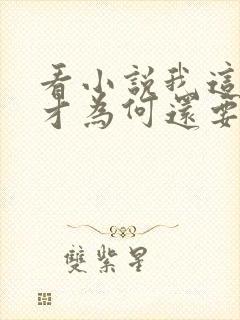 看小說我這
才為何還要
雙紫星